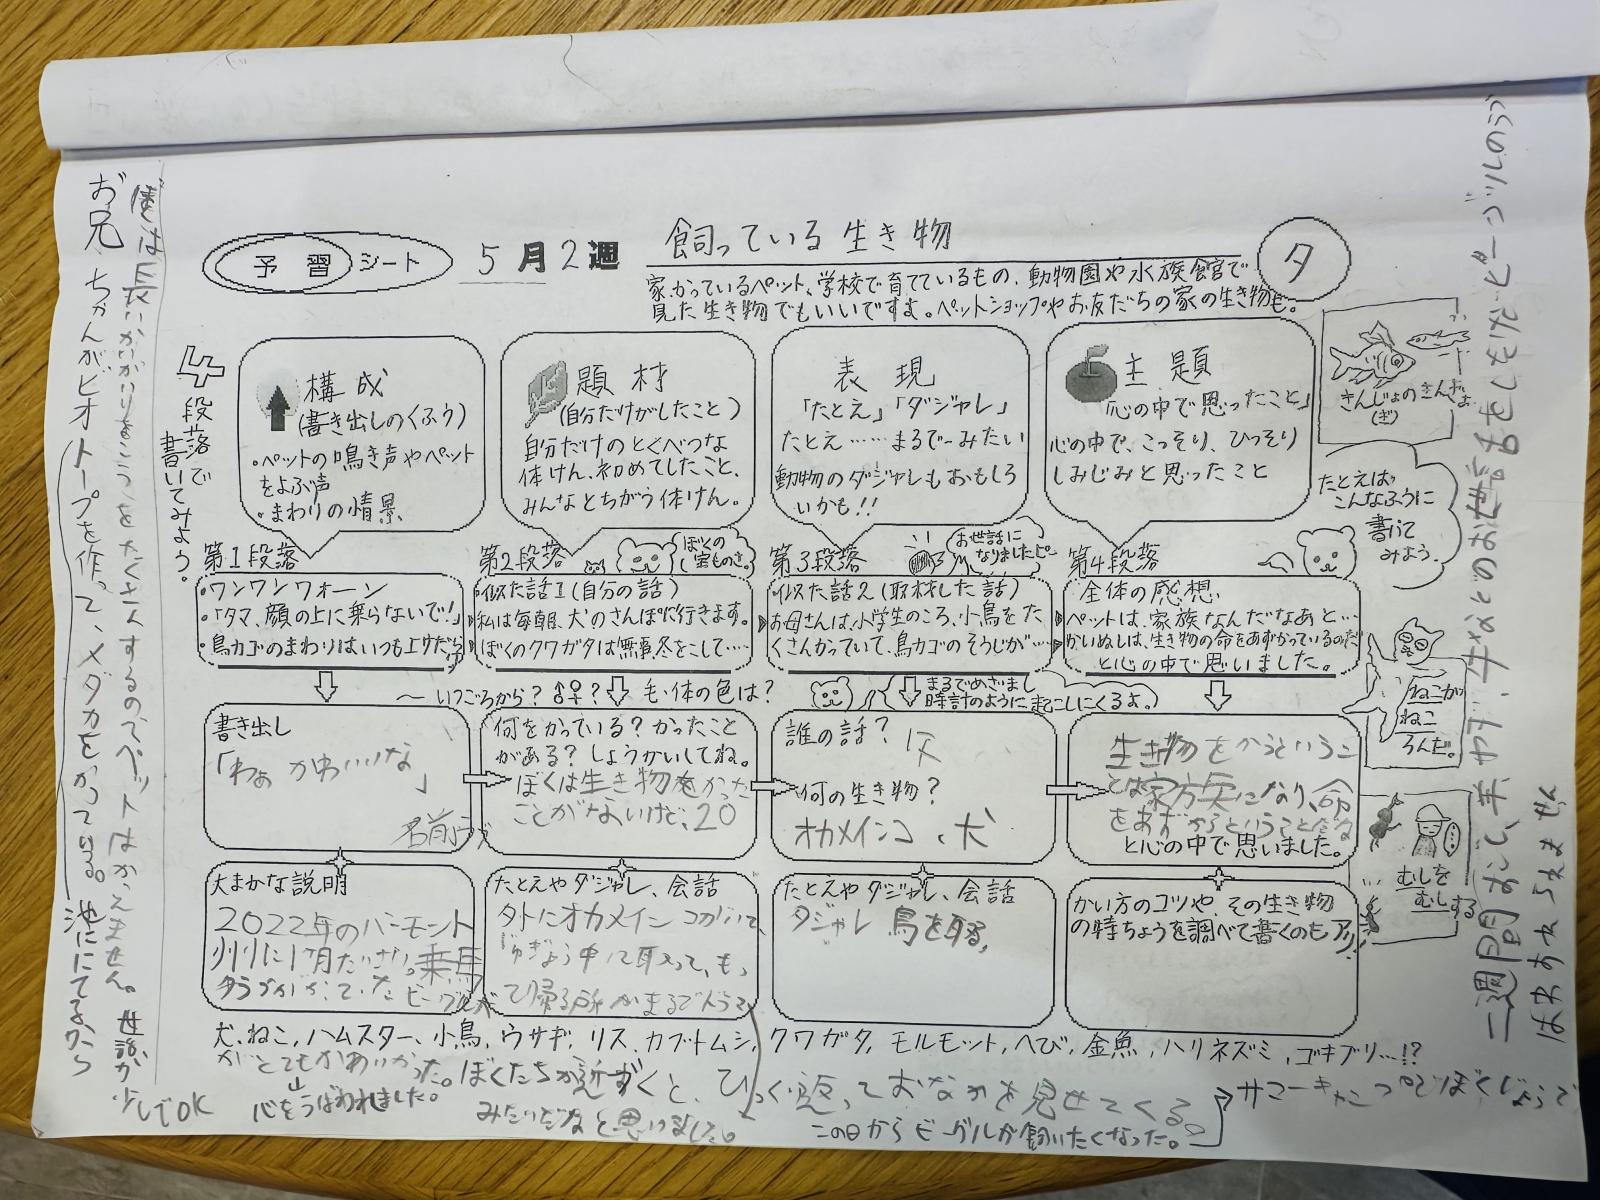 予習シート
5月2週
飼っている生き物
タ
家でかっているペット、学校で育てているもの、動物園や水族館で
見た生き物でもいいですよ。ペットショップやお友だちの家の生き物も。
4段落で
書いてみよう。
構成
(書き出しのくふう)
・ペットの鳴き声やペット
をよぶ声
・まわりの情景
題材
(自分だけがしたこと)
自分だけのとくべつな
体けん、初めてしたこと、
みんなとちがう体けん。
表現
「たとえ」「ダジャレ」
たとえ……まるで―みたい
動物のダジャレもおもしろ
いかも!!
主題
「心の中で思ったこと」
心の中で、こっそり、ひっそり
しみじみと思ったこと
きんじょのきんぎょ
(ぎ)
たとえば、
こんなふうに
書いて
みよう。
第1段落
・ワンワンワォーン
・「タマ、顔の上に乗らないで!」
・鳥カゴのまわりはいつも
第2段落
ぼくの
宝ものさ。
・似た話1(自分の話)
私は毎朝、犬のさんぽに行きます。
ぼくのクワガタは無事、冬をこして……
第3段落
お世話に
なりましたピー
・似た話2(取材した話)
お母さんは、小学生のころ、小鳥をた
くさんかっていて、鳥カゴのそうじが……
第4段落
全体の感想
ペットは、家族なんだなあと……
かいぬしは、生き物の命をあずかっているのだ
と心の中で思いました。
～いつごろから?♂♀?毛・体の色は?
まるでめざまし
時計のように起こしにくるよ。
ねこが
ねこ
ろんだ。
書き出し
「わぁ かわいいな」
名前
何をかっている?かったこと
がある?しょうかいしてね。
ぼくは生き物をかった
ことがないけど、20
誰の話?
何の生き物?
オカメインコ、犬
生き物をかうというこ
とは家族になり、命
をあずかるということだな
と心の中で思いました。
むしを
むしする
大まかな説明
2022年のバーモント
州に1か月
ビーグル
たとえやダジャレ、会話
外にオカメインコがいて、
たとえやダジャレ、会話
ダジャレ 鳥を取る,
かい方のコツや、その生き物
の特ちょうを調べて書くのもアリ
犬、ねこ、ハムスター、小鳥、ウサギ、リス、カブトムシ、クワガタ、モルモット、へび、金魚、ハリネズミ、ゴキブリ…!?
がとてもかわいかった。ぼくたちが近ずくと、ひっくり返っておなかを見せてくる。
心をうばわれました。
みたいだなと思いました。
この日からビーグルが飼いたくなった。
サマーキャンプでぼくじょうで
僕は長いかいがいりょこうをたくさんするので、ペットはかえません。世話が少しでOK
お兄ちゃんがビオトープを作って、メダカをかってる。池ににてるから